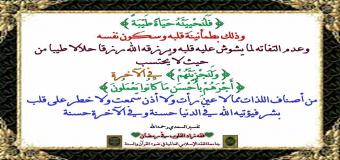 ﴿ فَلَنُحْيِيَنَّهُ حَيَاةً طَيِّبَةً ﴾
وذلك بطمأنينة قلبه وسكون نفسه
وعدم التفاته لما يشوش عليه قلبه ويرزقه الله رزقا حلالا طيبا من
حيث لا يحتسب
﴿ وَلَنَجْزِيَنَّهُمْ ﴾ في الآخرة
﴿ أَجْرَهُم بِأَحْسَنِ مَا كَانُوا يَعْمَلُونَ ﴾
من أصناف اللذات مما لا عين رأت ولا أذن سمعت ولا خطر على قلب
بشر فيؤتيه الله في الدنيا حسنة وفي الآخرة حسنة
تفسير السعدي رحمه الله